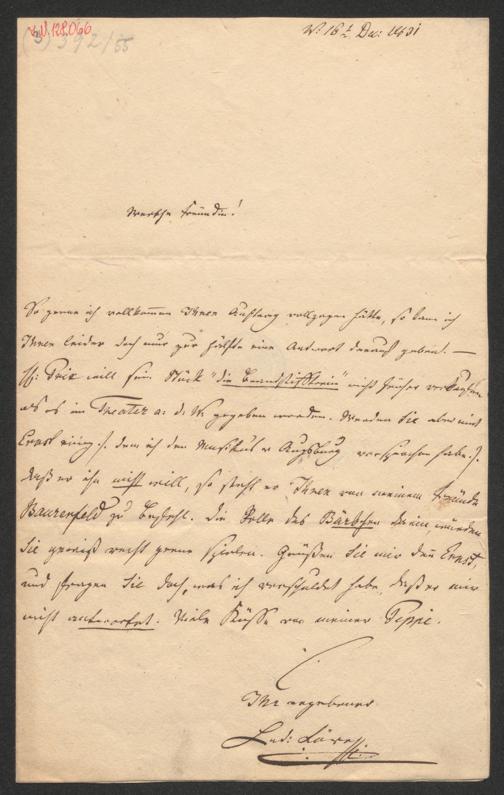 I.N. 128.066
(3) 392/55
W: 16t Dec: 1831
Werthe Freundin!
So gerne ich vollkommen Ihren Auftrag vollzogen hätte, so kann ich
Ihnen leider doch nur zur Hälfte eine Antwort darauf geben. —
H: Prix will sein Stück "die Brandstifterin" nicht früher verkaufen
als es im Theater a: d: W: gegeben worden. Wenden Sie aber mit
Ernst einig /: dem ich den Musikus v Augsburg versprochen habe :/
daß er ihn nicht will, so steht er Ihnen von meinem Freunde
Bauernfeld zu Befehl. Die Rolle des Bärbchen darin, würden
Sie gewiß recht gerne spielen. Grüßen Sie mir den Ernst
und fragen Sie doch, was ich verschuldet habe, daß er mir
nicht antwortet. Viele Küsse von meiner Peppi.
Ihr ergebener
Lud: Löwe